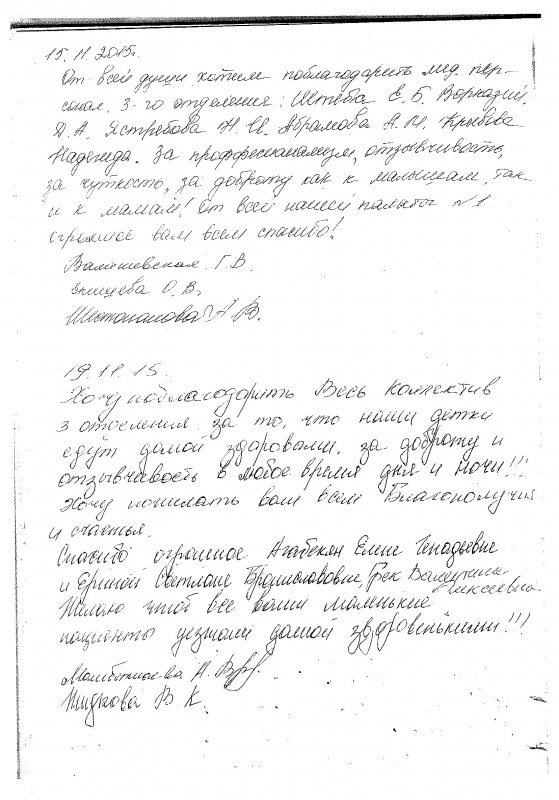 15.11.2015г.
От всей души хотим поблагодарить мед. пер-
сонал 3-го отделения: Штеба Е. Б.
Д.А. Ястребова Н. И. Абрамова А.М.
Надежда. За профессионализм, отзывчивость,
за чуткость, за доброту как к малышам, так
и к мамам! От всей нашей палаты №1
огромное вам всем спасибо!
Г.В.
О.В.
А. В.
19.11.15.
Хочу поблагодарить Весь коллектив
3 отделения за то, что наши детки
едут домой здоровыми, за доброту и
отзывчивость в любое время дня и ночи!!!
Хочу пожелать вам всем Благополучия
и счастья.
Спасибо огромное Агабекян Елене Генадьевне
и Ериной Светлане Брониславовне, Грек Валентине
Алексеевне.
Желаю чтоб все ваши маленькие
пациенты уезжали домой здоровенькими!!!
Н. В.
Жидкова В. К.